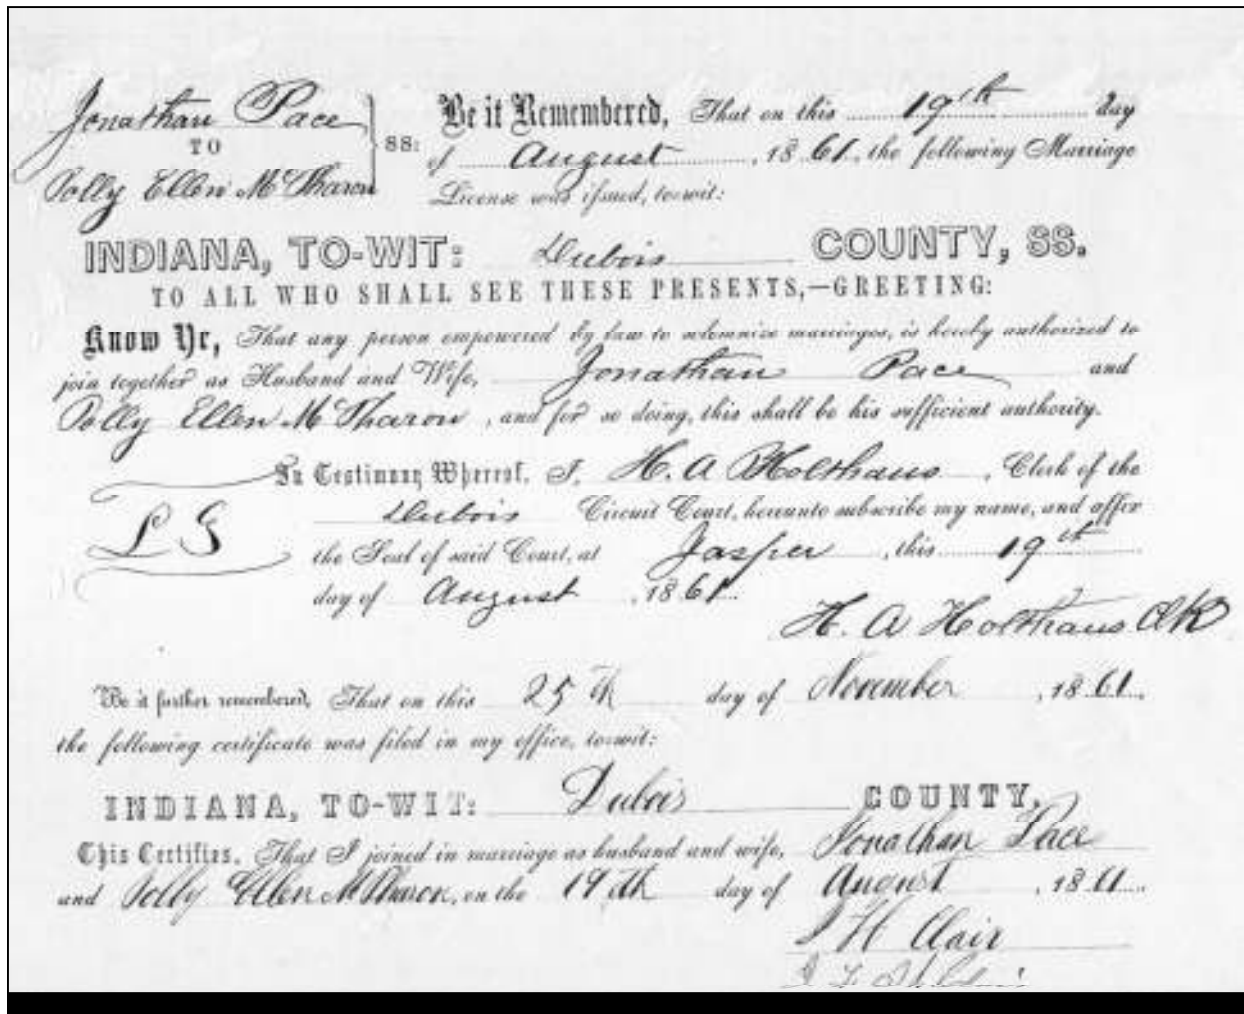 Jonathan Pace
TO
Polly Ellen McTharon
SS:
Be it Remembered, That on this 19th day
of August, 1861, the following Marriage
License was issued, to-wit:
INDIANA, TO-WIT: Dubois COUNTY, SS.
TO ALL WHO SHALL SEE THESE PRESENTS,—GREETING:
Know Ye, That any person empowered by law to solemnize marriages, is hereby authorized to
join together as Husband and Wife, Jonathan Pace and
Polly Ellen McTharon, and for so doing, this shall be his sufficient authority.
In Testimony Whereof, I, H. A Holthaus, Clerk of the
L S
Dubois Circuit Court, hereunto subscribe my name, and affix
the Seal of said Court, at Jasper, this 19th
day of August, 1861.
H. A Holthaus Clk
Be it further remembered, That on this 25th day of November, 1861,
the following certificate was filed in my office, to-wit:
INDIANA, TO-WIT: Dubois COUNTY,
This Certifies, That I joined in marriage as husband and wife, Jonathan Pace
and Polly Ellen McPharon, on the 19th day of August, 1861.
H Clair